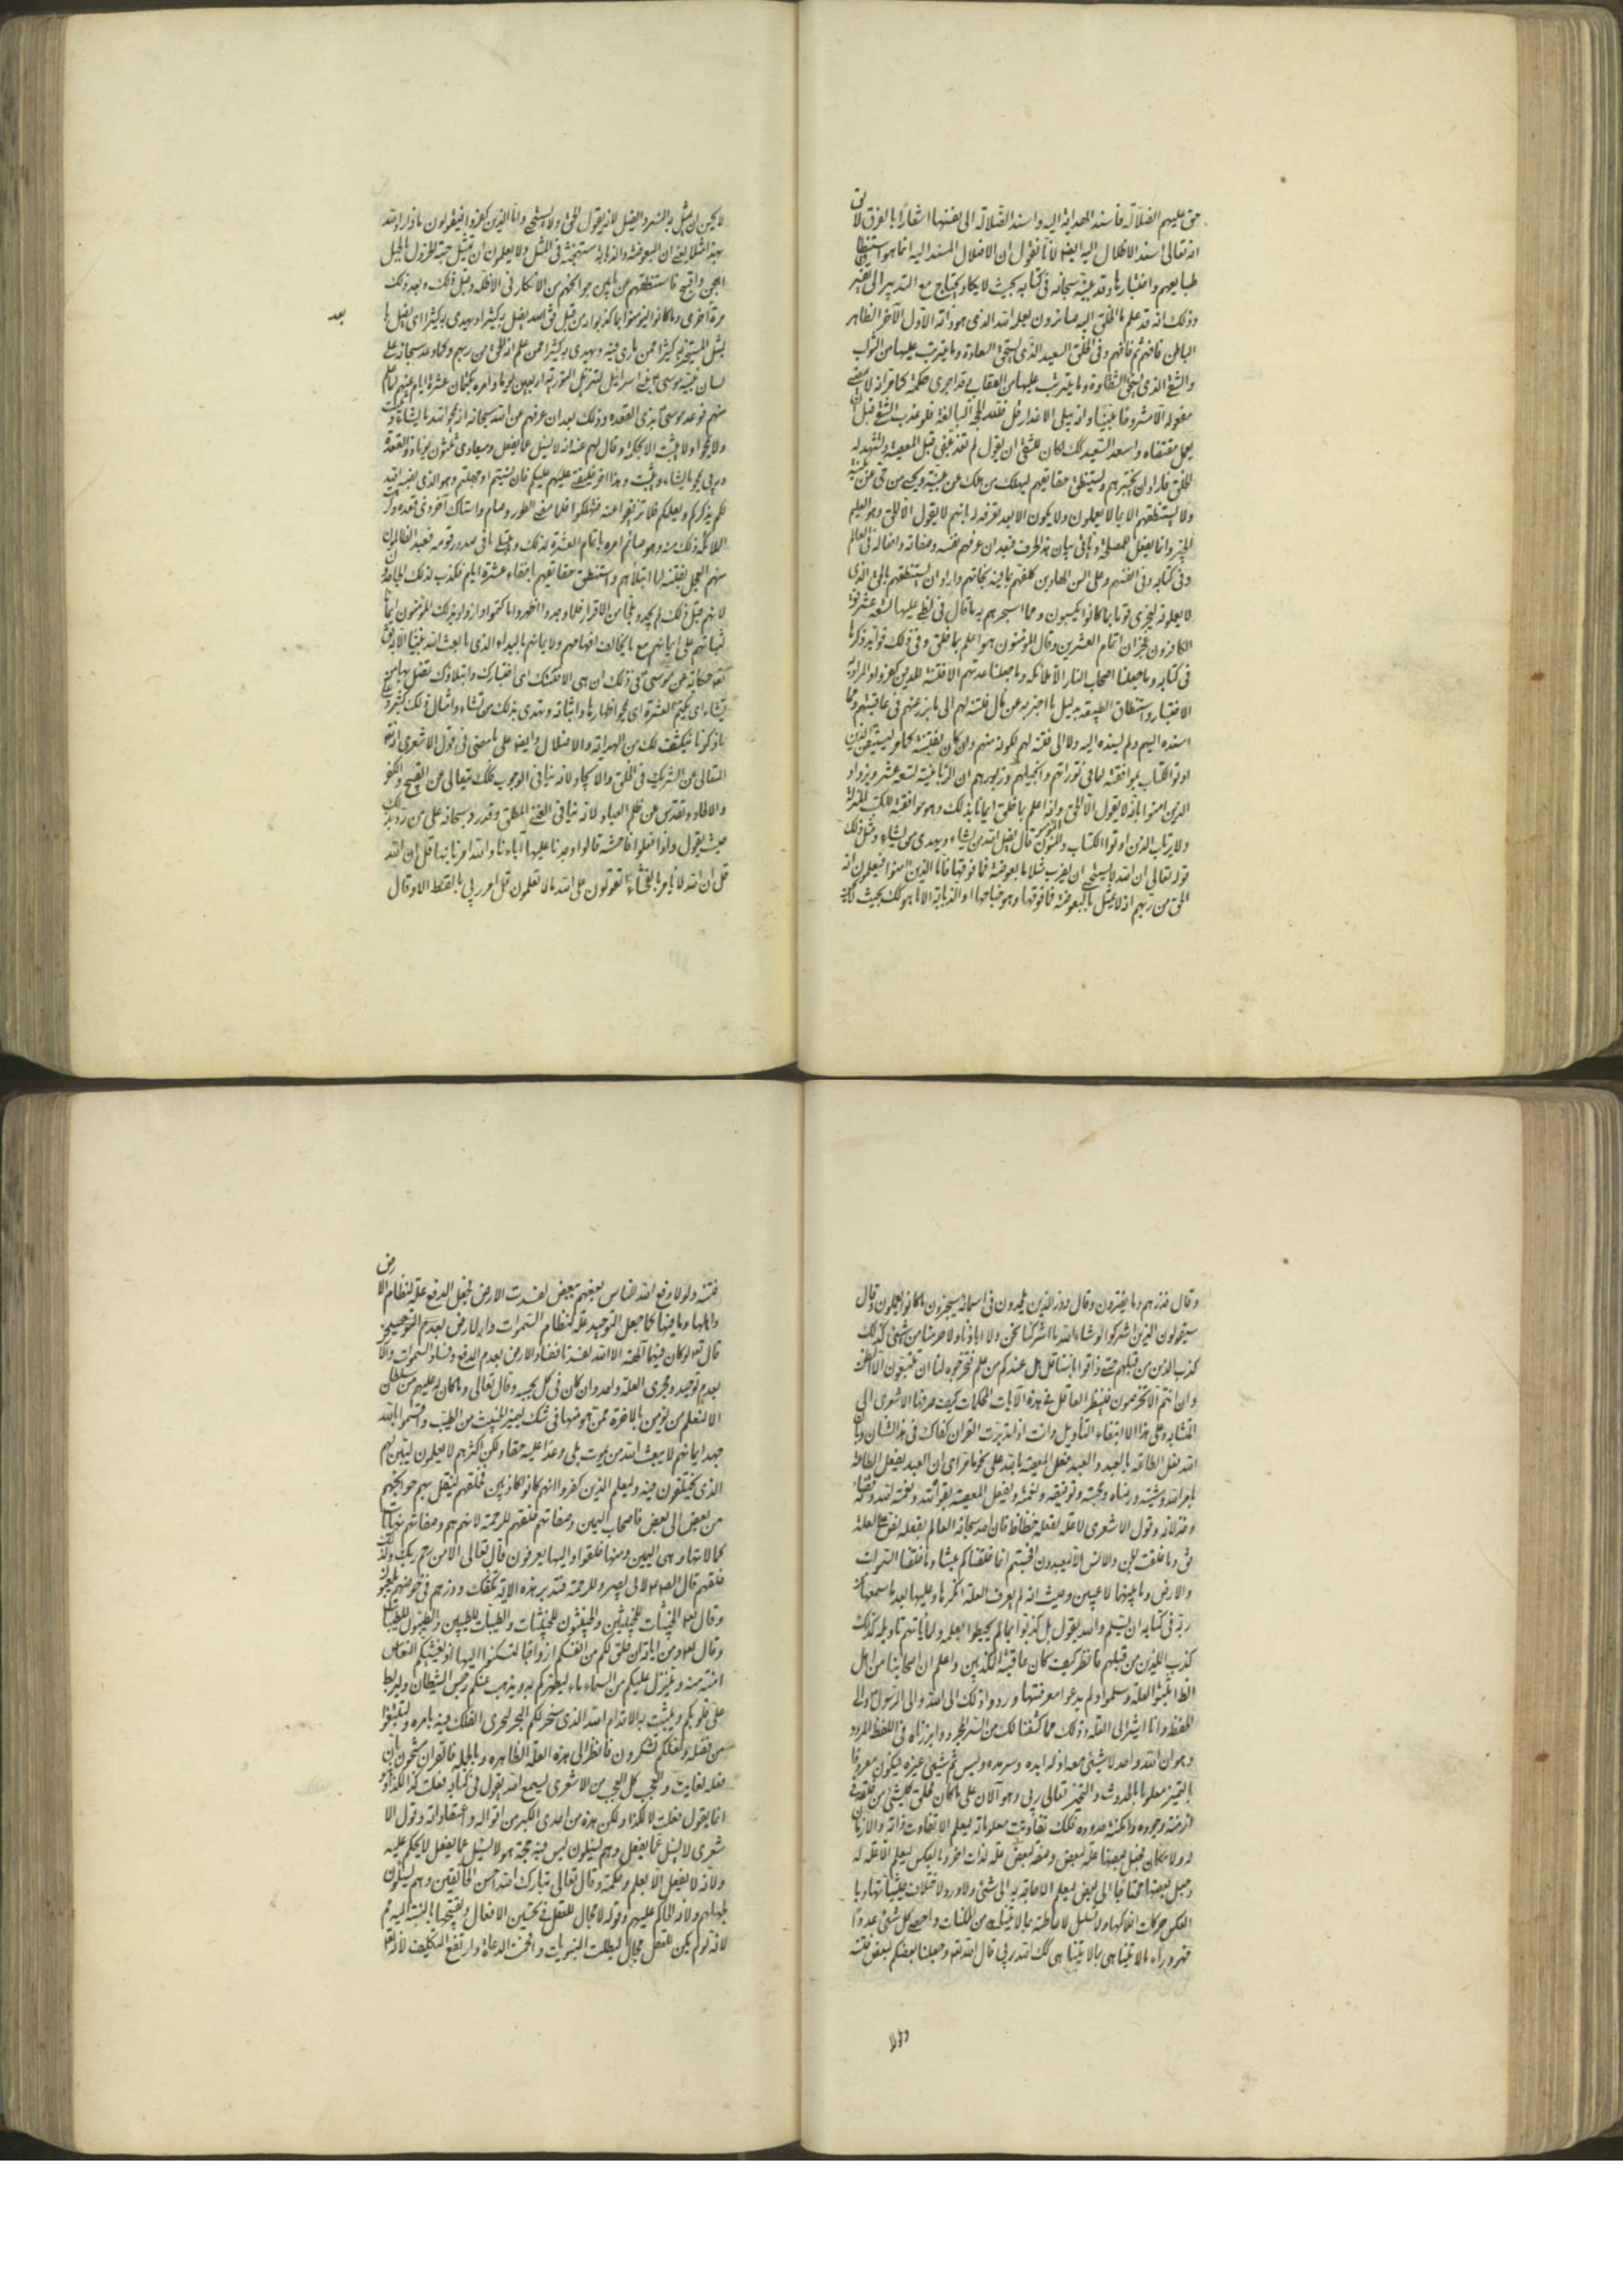 حق عليهم الضلالة فاسند الهداية اليه واسند الضلالة الى نفسها اشعارا بالفرق لا يق
انه تعالى اسند الاضلال اليه ايضا لانا نقول ان الاضلال المسند اليه انما هو استنطاق
طبايعهم واختبارها وقد بينه سبحانه فى كتابه بحيث لا يكاد يحتاج مع التدبر الى تفسير
وذلك انه قد علم ما الخلق اليه صائرون بعلم الله الذى هو ذاته الاول الآخر الظاهر
الباطن فافهم ثم فافهم وفى الخلق السعيد الذى يستحق السعادة وما يترتب عليها من الثواب
والشقى الذى يستحق الشقاوة وما يترتب عليها من العقاب
يعمل بمقتضاه واسعد السعيد كذلك لكان للشقى ان يقول لم تعذبنى قبل المعصية ولتشهد له
الخلق فاراد ان يختبرهم ويستنطق حقايقهم ليهلك من هلك عن بينة ويحيى من حى عن بينة
ولا يستنطقهم الا بما لا يعلمون ولا يكون الا بعد تعرفه لهم بانه لا يقول الا الحق وهو العليم
الخبير وانما يفعل للمصلحة فبعد ان عرفهم نفسه وصفاته وافعاله فى العالم
وفى كتابه وفى انفسهم وعلى السن الهادين كلفهم بما فيه نجاتهم واراد ان يستنطقهم بالحق الذى
لا يعلمونه ليجزى قوما بما كانوا يكسبون ومما اختبرهم به ما قال فى لظى عليها تسعة عشر فقال
الكافرون عجز ان اتمام العشرين وقال المؤمنون هو اعلم بما خلق وفى ذلك فوائد ذكرها
فى كتابه وما جعلنا اصحاب النار الا ملائكة وما جعلنا عدتهم الا فتنة للذين كفروا والمراد به
الاختبار واستنطاق الطبيعة بدليل ما اخبر به عن مآل فتنته لهم الى ما برز عنهم فى عاقبتهم مما
اسنده اليهم ولم يسنده اليه ولا الى فتنته لهم لكونه منهم وان كان بفتنته كما مر ليستيقن الذين
اوتوا الكتاب بموافقته لما فى توراتهم وانجيلهم وزبورهم ان الزبانية تسعة عشر ويزداد
الذين امنوا بانه لا يقول الا الحق وانه اعلم بما خلق ايمانا بذلك وهو موافقة للكتب المنزلة
ولا يرتاب الذين اوتوا الكتاب والمؤمنون الى قوله قال يضل الله من يشاء ويهدى من يشاء ومثل ذلك
قوله تعالى ان الله لا يستحيى ان يضرب مثلا ما بعوضة فما فوقها فاما الذين امنوا فيعلمون انه
الحق من ربهم انه لا يمثل بالبعوضة فما فوقها وهو جناحها او الذبابة الا ما هو كذلك بحيث لا
لا يحسن ان يمثل به النسر والفيل لانه يقول الحق ولا يستحيى واما الذين كفروا فيقولون ماذا اراد الله
بهذا مثلا يعنى ان البعوضة والذبابة مستهجنة فى المثل ولا يعلمون ان تمثيل حبة الخردل بالجبل
اهجن واقبح فاستنطقهم عن ما بين جوانحهم من الانكار فى الاظلة وقبل ذلك وبعد ذلك
مرة اخرى وما كانوا ليؤمنوا بما كذبوا به من قبل فقال يضل به كثيرا ويهدى به كثيرا اى يضل بما
بعد
يمثل كثيرا ممن مارى فيه ويهدى به كثيرا ممن علم انه الحق من ربهم وكما وعد سبحانه على
لسان نبيه موسى ع بنى اسرائيل لتنزيل التورية اربعين يوما وامره بكتمان عشرة ايام
منهم فوعد موسى ثلاثين ذى القعدة وذلك بعد ان عرفهم عن الله سبحانه انه يمحو الله ما يشاء ويثبت
ولا يمحو ولا يثبت الا بحكمة وقال لهم عنه انه لا يسئل عما يفعل وميعادى ثلثون يوما ذو القعدة
وربى يمحو ما يشاء ويثبت وهذا اخى خليفتى عليهم عليكم فان نسيتم او جهلتم وهو الذى نصبه الله
لكم يذكركم ويعلمكم فلا تزيغوا عنه فتهلكوا فلما مضى الطور وصام واستاك آخر ذى قعدة وكره
الملائكة ذلك منه وهو صائم امره باتمام العشرة لذلك وليبتلى ما فى صدور قومه فعبد الظالمون
منهم العجل بفتنته لما ابتلاهم واستنطق حقايقهم باخفاء عشرة ايام فكذب لذلك الجاحدون
لانهم قبل ذلك لم يجدوا ملجأ من الاقرار فلما وجدوا اظهروا ما كتموا وازداد بذلك المؤمنون ايمانا
لثباتهم على ايمانهم مع ما يخالف افهامهم ولايمانهم بالبداء الذى ما بعث الله نبيا الا به فقال
تعالى حكاية عن موسى ع فى ذلك ان هى الا فتنتك اى اختبارك وابتلاؤك تضل بها من
تشاء اى بكتم العشرة اى محو اظهارها واثباته وتهدى بذلك من تشاء وامثال ذلك كثير
ما ذكرنا ينكشف لك من الهداية والاضلال وايضا على ما مضى فى قول الاشعرى انه
المتعالى عن الشريك فى الخلق والايجاد لانه ينافى الوجوب فكذلك تعالى عن القبيح والكفر
والالحاد وتقدس عن ظلم العباد لانه ينافى الغنى المطلق وقد رد سبحانه على من زعم ذلك
حيث يقول واذا فعلوا فاحشة قالوا وجدنا عليها آباءنا والله امرنا بها قل ان الله
قل ان الله لا يأمر بالفحشاء اتقولون على الله ما لا تعلمون قل امر ربى بالقسط الا وقال
وقال فذرهم وما يفترون وقال وذر الذين يلحدون فى اسمائه سيجزون ما كانوا يعملون وقال
سيقولون الذين اشركوا لو شاء الله ما اشركنا نحن ولا اباؤنا ولا حرمنا من شىء كذلك
كذب الذين من قبلهم حتى ذاقوا باسنا قل هل عندكم من علم فتخرجوه لنا ان تتبعون الا الظن
وان انتم الا تخرصون فلينظر العاقل فى هذه الآيات المحكمات كيف صرفها الاشعرى الى
المتشابه وعلى هذا الا ابتغاء التأويل وانت اذا تدبرت القران كفاك فى هذا الشان وبان
الله بفعل الطاعة بالعبد والعبد يفعل المعصية بالله على نحو ما مر اى ان العبد يفعل الطاعة
بامر الله ومشيته ورضاه ومحبته وتوفيقه ونعمته ويفعل المعصية بقوة الله ونعمة الله وقضائه
وخذلانه وقول الاشعرى لا علة لفعله خطأ فان الله سبحانه العالم بفعله نص على العلة
فى وما خلقت الجن والانس الا ليعبدون افحسبتم انما خلقناكم عبثا وما خلقنا السموات
والارض وما بينهما لاعبين وحيث انه لم يعرف العلة انكرها وعليها بعد ما سمعها من
ربه فى كتابه ان يسلم والله يقول بل كذبوا بما لم يحيطوا بعلمه ولما يأتهم تأويله كذلك
كذب الذين من قبلهم فانظر كيف كان عاقبة المكذبين واعلم ان اصحابنا من اهل
الظاهر اثبتوا العلة وسلموا ولم يدعوا معرفتها وردوا ذلك الى الله والى الرسول ص والى
الحفظة وانا اشير الى العلة وذلك مما كشفنا لك من السر المجرد وابرزناه فى اللفظ المردد
وهو ان الله واحد لا شىء معه اذ لم ابده وسرمده وليس ثم شىء غيره ليكون معروفا
بالتميز معلوما بالحدوث والتحيز تعالى ربى وهو الآن على ما كان فخلق كل شىء من خلقه فى
ازمنة وجوده وامكنة حدوده فلك تفاوتت معلوماته ليعلم الا تفاوت لذاته ولا زمان
له ولا مكان فجعل بعضها علة لبعض وبعضه لبعض علة لذات اخرى وبالعكس ليعلم الا علة له
وجعل بعضها محتاجا الى بعض ليعلم الا حاجة به الى شىء ولا
العكس حركات افلاكها ولا تسلسل لاحاطته بما لا يتناهى من الممكنات واحصى كل شىء عددا
فهو وراء ما لا يتناهى بما لا يتناهى ذلك الله ربى قال الله تعالى وجعلنا بعضكم لبعض فتنة
فتنة ولولا دفع الله الناس بعضهم ببعض لفسدت الارض فجعل الدفع علة لنظام الارض
واهلها وما فيها كما جعل التوحيد علة لنظام السموات والارض لعدم
قال تعالى لو كان فيهما آلهة الا الله لفسدتا ففساد الارض بعدم الدفع وفساد السموات والارض
بعدم توحيده ومجرى العلة واحد وان كان فى كل بحسبه وقال تعالى وما كان له عليهم من سلطان
الا لنعلم من يؤمن بالاخرة ممن هو منها فى شك ليميز الخبيث من الطيب واقسموا بالله
جهد ايمانهم لا يبعث الله من يموت بلى وعدا عليه حقا ولكن اكثرهم لا يعلمون ليبين لهم
الذى يختلفون فيه وليعلم الذين كفروا انهم كانوا كاذبين فخلقهم لينقل بهم حوائجهم
من بعض الى بعض فاصحاب اليمين وصفاتهم خلقهم للرحمة لانهم هم وصفاتهم نهايات
كمالاتها وهى اليمين ومنها خلقوا واليها يعرفون قال تعالى الا من رحم ربك ولذلك
خلقهم قال الص ع لابى بصير وللرحمة فتدبر هذه الاية تكفك وذرهم فى خوضهم يلعبون
وقال تعالى الخبيثات للخبيثين والخبيثون للخبيثات والطيبات للطيبين والطيبون للطيبات
وقال تعالى ومن آياته ان خلق لكم من انفسكم ازواجا لتسكنوا اليها اذ يغشيكم النعاس
امنة منه وينزل عليكم من السماء ماء ليطهركم به ويذهب عنكم رجس الشيطان وليربط
على قلوبكم ويثبت به الاقدام الله الذى سخر لكم البحر لتجرى الفلك فيه بامره ولتبتغوا
من فضله ولعلكم تشكرون فانظر الى هذه العلة الظاهره وبالجملة فالقران مشحون بان
فعله لغايات والعجب كل العجب من الاشعرى يسمع الله يقول فى كتابه فعلت كذا لكذا وهو
انما يقول فعلت لا لكذا ولكن هذه من احدى الكبر من اقواله واعتقاداته وقول الا
شعرى لا يسئل عما يفعل وهم يسئلون ليس فيه حجة هو لا يسئل عما يفعل لا يحكم عليه
ولانه لا يفعل الا بعلم وحكمة وقال تعالى تبارك الله احسن الخالقين وهم يسئلون
لجهلهم ولانه الحاكم عليهم وقوله لا مجال للعقل فى تحسين الافعال وتقبيحها بالنسبة اليه ثم
لانه لو لم يكن للعقل مجال لبطلت النبويات والحمت الدعاة وارتفع التكليف لانه تعا